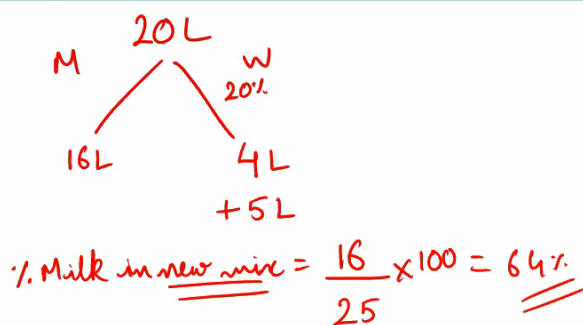 20L
M W
20%
16L 4L
+5L
% Milk in new mix = 16/25 × 100 = 64%